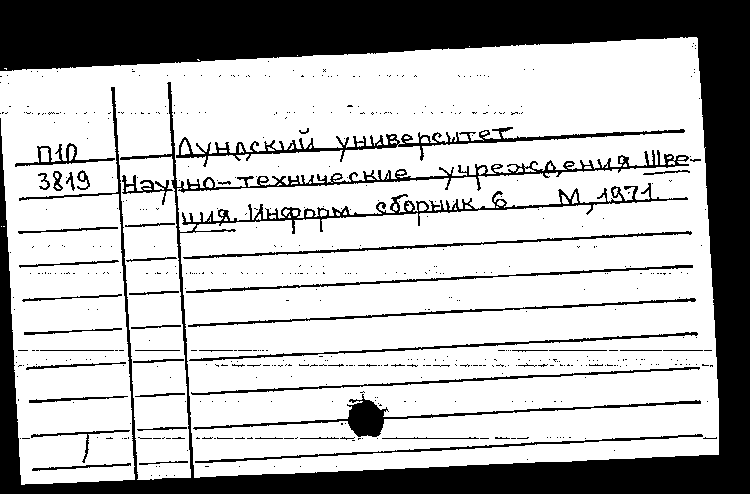 П10 Лундский университет
3819 Научно-технические учреждения. Шве-
ция. Информ. сборник. 6 М, 1971.